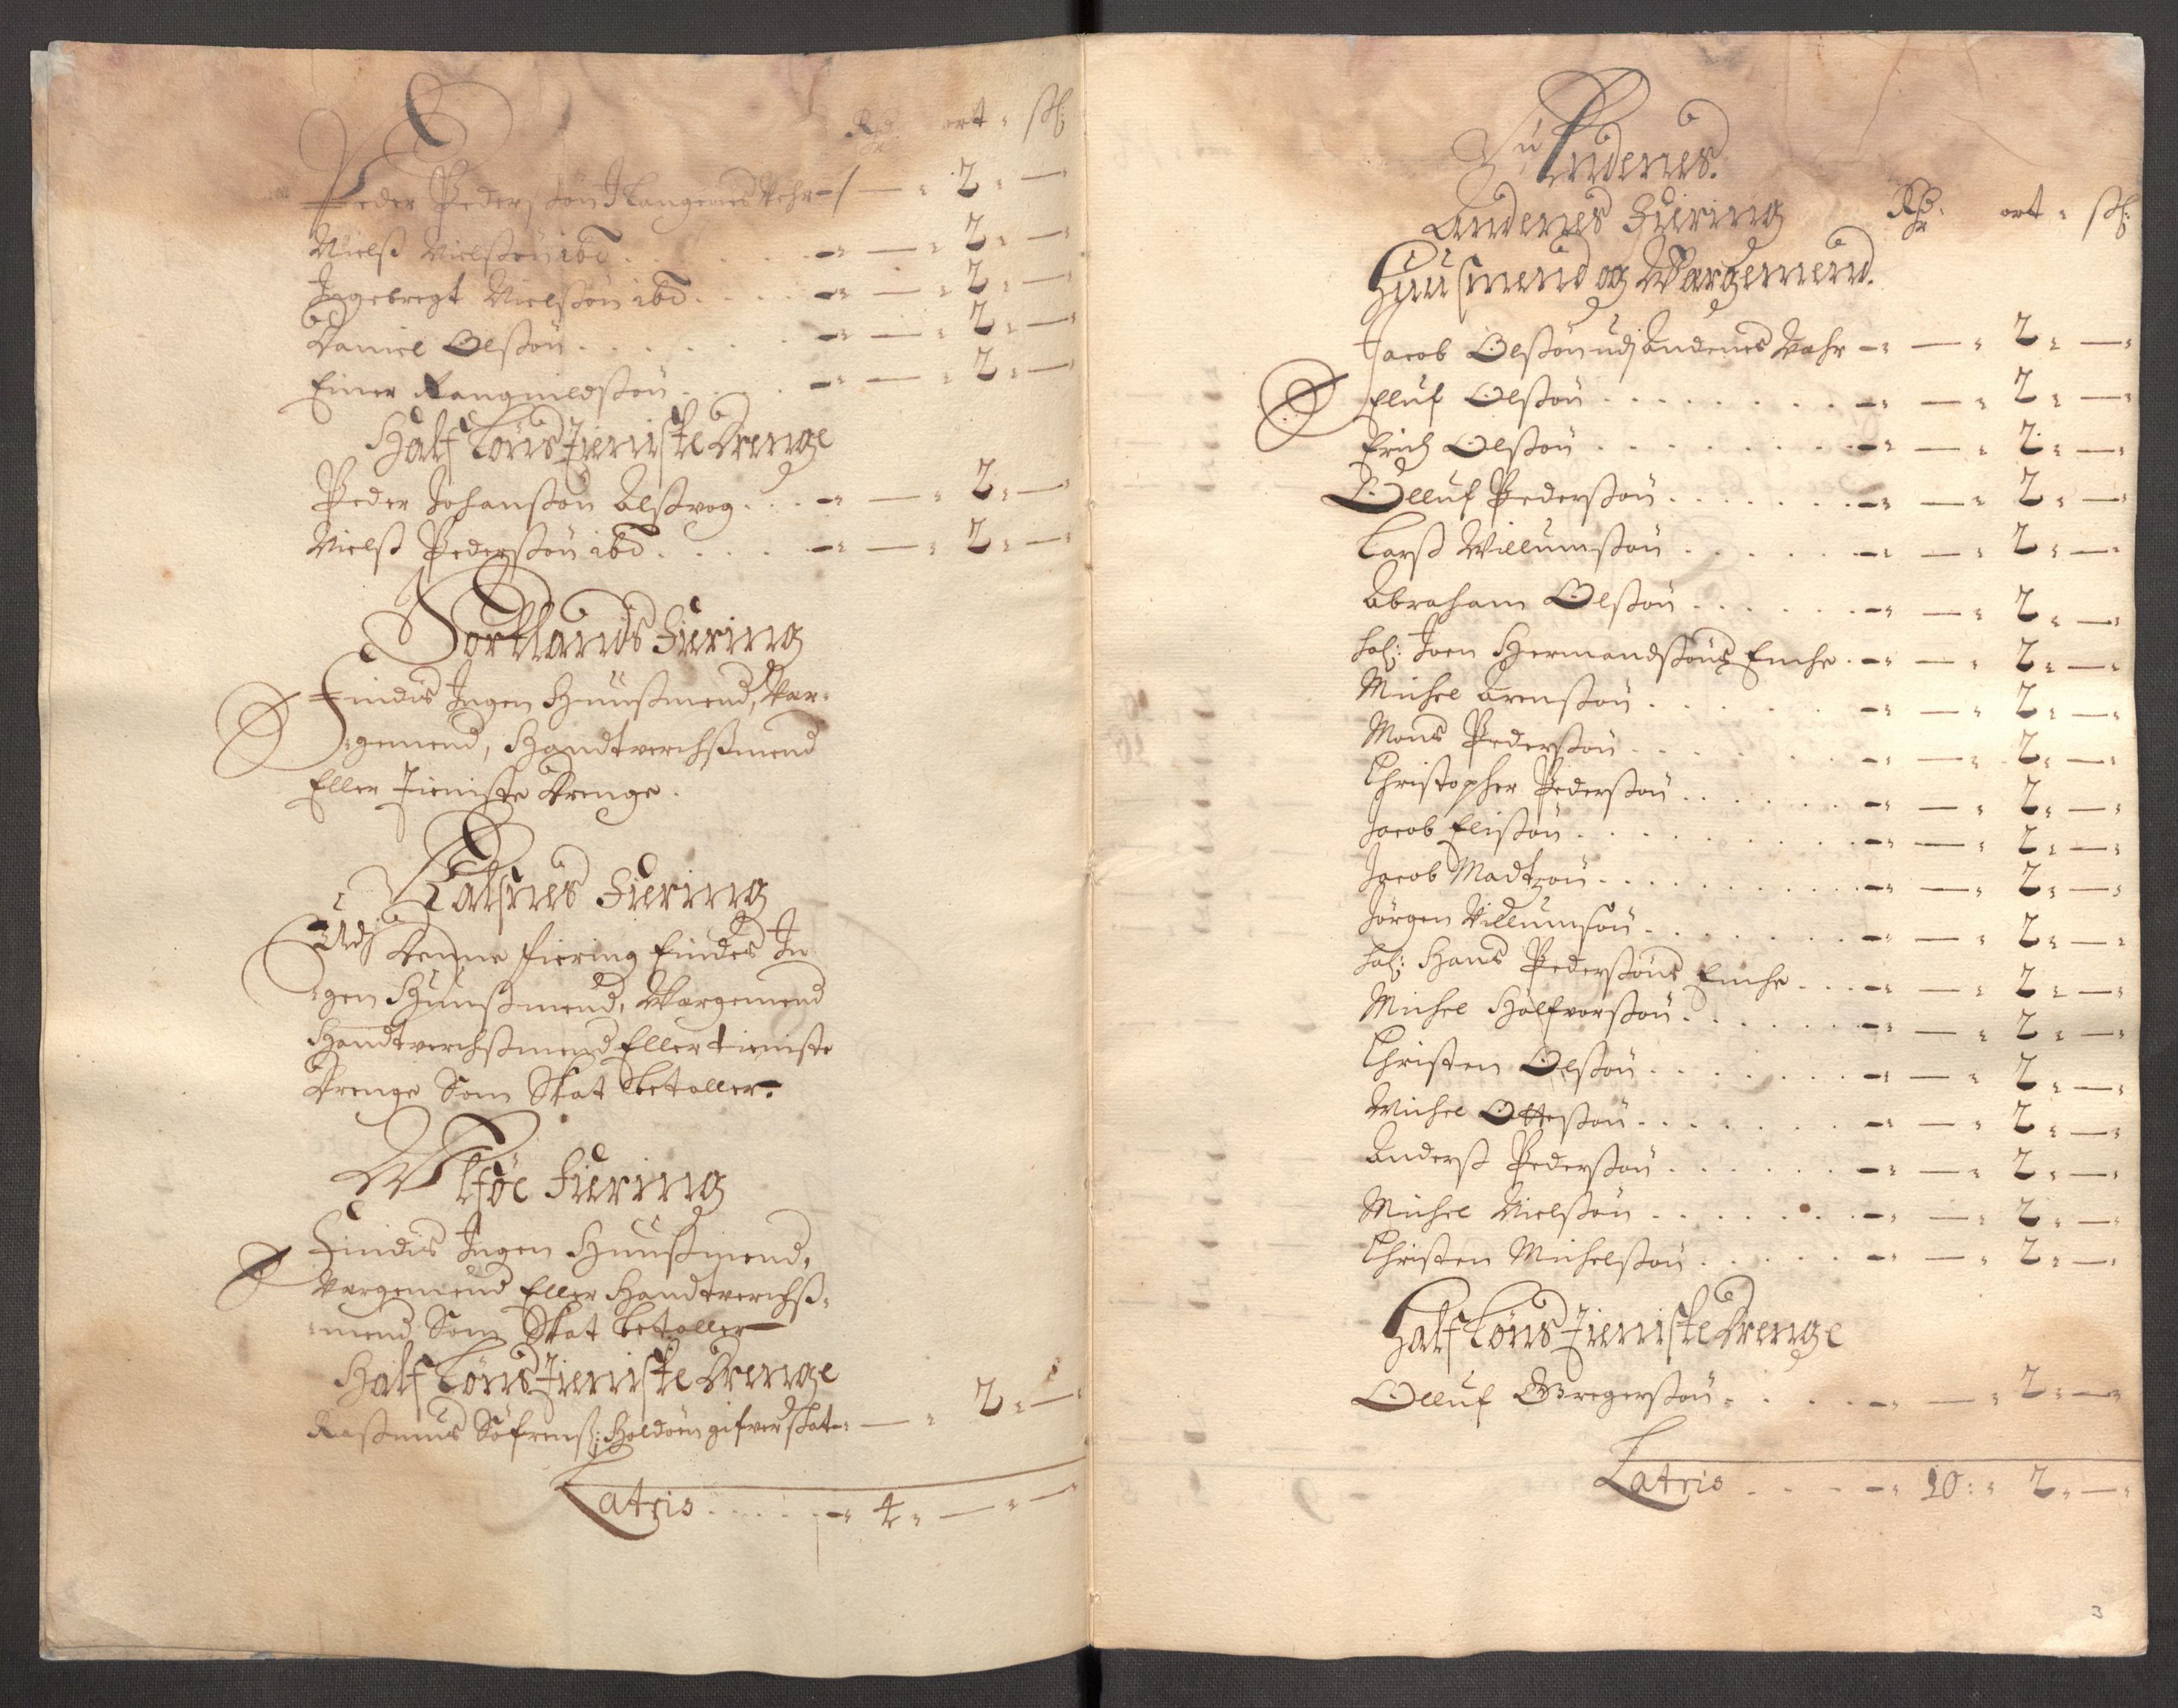 Rdr ort s ßk:
Peder Pedersøn I Langenes Vehr - / — 2 —
Nielß Nielßøn ibd . . . . - — 2 —
Ingebregt Nielßøn ibd . . . . - — 2 —
Daniel Olßøn . . . . . - — 2 —
Einer Rangnildßøn . . . . - — 2 —
Half Løns Tieniste Drenge
Peder Johanßøn Alßvog . . . - — 2 —
Nielß Pederßøn ibd . . . . - — 2 —
Jortlands Fiering
Findis Ingen Huußmend, Var-
gemend, Handtverchßmend
Eller Tieniste Drenge.
Latsnes Fiering
Udj denne fiering Findes In
gen Huußmend, Vargemend
Handtverchßmend Eller tieniste
Drenge Som Skat betaller.
Ulføe Fiering
Findis Ingen Huußmend,
Vargemend Eller Handtverchß-
mend Som Skat betaller
Half Løns Tieniste Drenge
Raßmus Søfrenß: Holdøen gifver skat - — 2 —
Latris . . . . . - 4 — —
Zu Andenes.
Andenes Fiering Rdr ort s ßk:
Huusmend og Wargemend.
Jacob Olßøn udj Andenes Vahr - — 2 —
Elluf Olßøn . . . . . . . . . - — 2 —
Erich Olßøn . . . . . . . . - — 2 —
Olluf Pederßøn . . . . . . . - — 2 —
Larß Willumßøn . . . . . . - — 2 —
Abraham Olßøn . . . . . . - — 2 —
Sal: Joen Hermandßøns Enche . - — 2 —
Michel Arenßøn . . . . . . . - — 2 —
Mons Pederßøn . . . . . . . - — 2 —
Christopher Pederßøn . . . . . . - — 2 —
Jacob Elißøn . . . . . . . . - — 2 —
Jacob Madtzøn . . . . . . . . . . . - — 2 —
Jørgen Villumsøn . . . . . . . - — 2 —
Sal: Hans Pederßøns Enche . . . - — 2 —
Michel Halfvorßøn . . . . . . . - — 2 —
Christen Olßøn . . . . . . . - — 2 —
Michel Otteßøn . . . . . . . - — 2 —
Anderß Pederßøn . . . . . . - — 2 —
Michel Nielßøn . . . . . . . - — 2 —
Christen Michelßøn . . . . . - — 2 —
Half Løns Tieniste Drenge
Olluf Gregerßøn . . . . - — 2 —
Latris . . . . - 10: 2 —
3